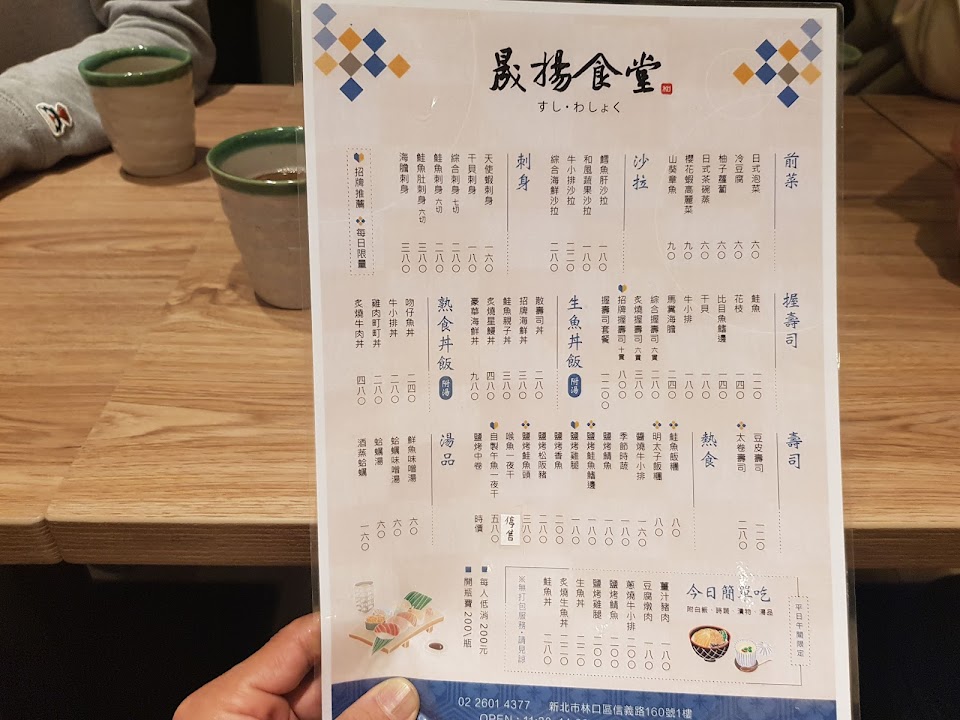 晟揚食堂
すし・わしょく
前菜
日式泡菜 六〇
冷豆腐 六〇
柚子蘿蔔 六〇
日式茶碗蒸 六〇
櫻花蝦高麗菜 九〇
山葵章魚 九〇
沙拉
鱈魚肝沙拉 一八〇
和風蔬果沙拉 一八〇
牛小排沙拉 二二〇
綜合海鮮沙拉 二八〇
刺身
天使蝦刺身 一六〇
干貝刺身 一八〇
綜合刺身 七切 二八〇
鮭魚刺身 六切 一八〇
鮭魚肚刺身 六切 三八〇
海膽刺身 三八〇
招牌推薦 每日限量
握壽司
鮭魚 一二〇
花枝 一四〇
比目魚鰭邊 一四〇
干貝 一八〇
牛小排 一八〇
馬糞海膽 二四〇
綜合握壽司 六貫 二八〇
炙燒握壽司 六貫 三八〇
招牌握壽司 十貫 八〇〇
握壽司套餐 一二〇〇
生魚丼飯 附湯
散壽司丼 二八〇
招牌海鮮丼 三八〇
鮭魚親子丼 三八〇
炙燒星鰻丼 四八〇
豪華海鮮丼 九八〇
熟食丼飯 附湯
吻仔魚丼 二四〇
牛小排丼 二八〇
雞肉町町丼 二八〇
炙燒牛肉丼 四八〇
壽司
豆皮壽司 一二〇
太卷壽司 二八〇
熱食
鮭魚飯糰 八〇
明太子飯糰 八〇
醬燒牛小排 一六〇
季節時蔬 一八〇
鹽烤鯖魚 一八〇
鹽烤鮭魚鰭邊 一八〇
鹽烤雞腿 一八〇
鹽烤香魚 二〇〇
鹽烤松阪豬 二八〇
鹽烤鮭魚頭 三八〇
喉魚一夜干 停售
自製午魚一夜干 五八〇
鹽烤中卷 時價
湯品
鮮魚味噌湯 六〇
蛤蠣味噌湯 六〇
蛤蠣湯 六〇
酒蒸蛤蠣 一六〇
平日午間限定
今日簡單吃
附白飯・時蔬・漬物・湯品
薑汁豬肉 一八〇
豆腐燉肉 一八〇
蔥燒牛小排 二〇〇
鹽烤鯖魚 二〇〇
鹽烤雞腿 二〇〇
生魚丼 二二〇
炙燒生魚丼 二二〇
鮭魚丼 二八〇
米無打包服務・請見諒
每人低消200元
開瓶費200\瓶
02 2601 4377 新北市林口區信義路160號1樓